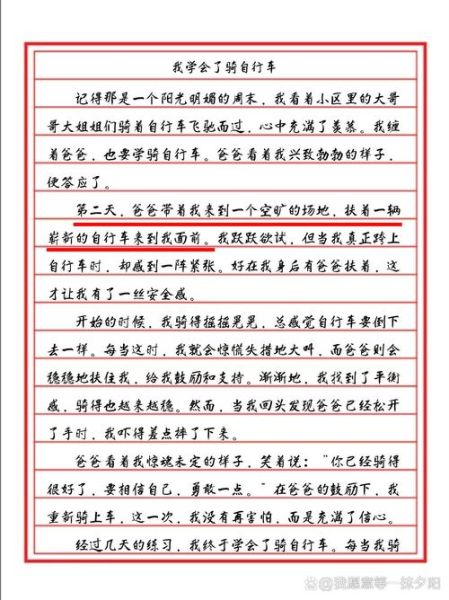 我学会了骑自行车
记得那是一个阳光明媚的周末，我看着小区里的大哥
哥大姐姐们骑着自行车飞驰而过，心中充满了羡慕。我缠
着爸爸，也要学骑自行车。爸爸看着我兴致勃勃的样子，
便答应了。
第二天，爸爸带着我来到一个空旷的场地，扶着一辆
崭新的自行车来到我面前。我跃跃欲试，但当我真正跨上
自行车时，却感到一阵紧张。好在我身后有爸爸扶着，这
才让我有了一丝安全感。
开始的时候，我骑得摇摇晃晃，总感觉自行车要倒下
去一样。每当这时，我就会惊慌失措地大叫，而爸爸则会
稳稳地扶住我，给我鼓励和支持。渐渐地，我找到了平衡
感，骑得也越来越稳。然而，当我回头发现爸爸已经松开
了手时，我吓得差点摔了下来。
爸爸看着我惊魂未定的样子，笑着说：“你已经骑得
很好了，要相信自己，勇敢一点。”在爸爸的鼓励下，我
重新骑上车，这一次，我没有再害怕，而是充满了信心。
经过几天的练习，我终于学会了骑自行车。每当我骑
@我愿意等一抹夕阳